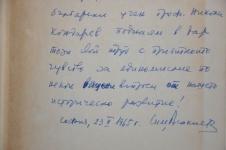 български учен проф. Никола
Кондарев поднасям в дар
този мой труд с приятното
чувство за единомислие по
някои въпроси от нашето
историческо развитие!
София, 23 X 1965 г.